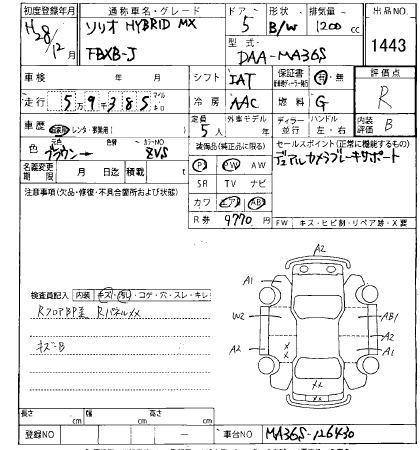 初度登録年月 通称車名・グレード ドア 形状 排気量 出品NO
H28/12月 ソリオ HYBRID MX 5 B/W 1200cc 1443
FBXB-J 型式 DAA-MA36S
車検 年 月 シフト IAT 保証書 有・無 評価点
走行 5万9千385 冷房 AAC 燃料 G R
車歴 自家用 レンタ・事業用( ) 定員 5人 外車モデル 年 ディーラー 並行 ハンドル 左・右 内装 B
色 元色 ブラウン 色替 カラーNO ZVS 装備品(純正品に限る) セールスポイント(正常に機能するもの)
デュアルカメラブレーキサポート
名義変更期限 月 日迄 積載 t PS PW AW
注意事項(欠品・修復・不具合箇所および状態) SR TV ナビ
カワ エアB ABS
R券 9770円 FW キズ・ヒビ割・リペア跡・X要
A2
A1
検査員記入 内装 キズ・汚れ・コゲ・穴・スレ・キレ
RフロアBP歪 Rパネルxx
キズB
W2 AB1
A2 xx A2
A1
xx
A2
長さ cm 幅 cm 高さ cm
登録NO — 車台NO MA36S-126430